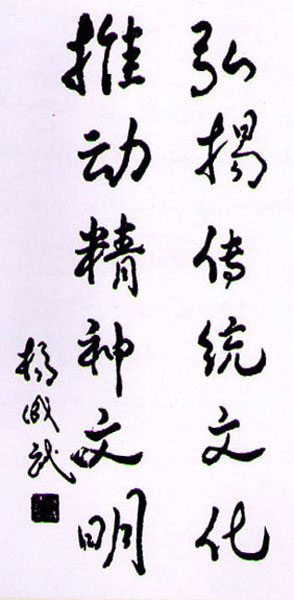 弘揚传统文化
推动精神文明
楊成武